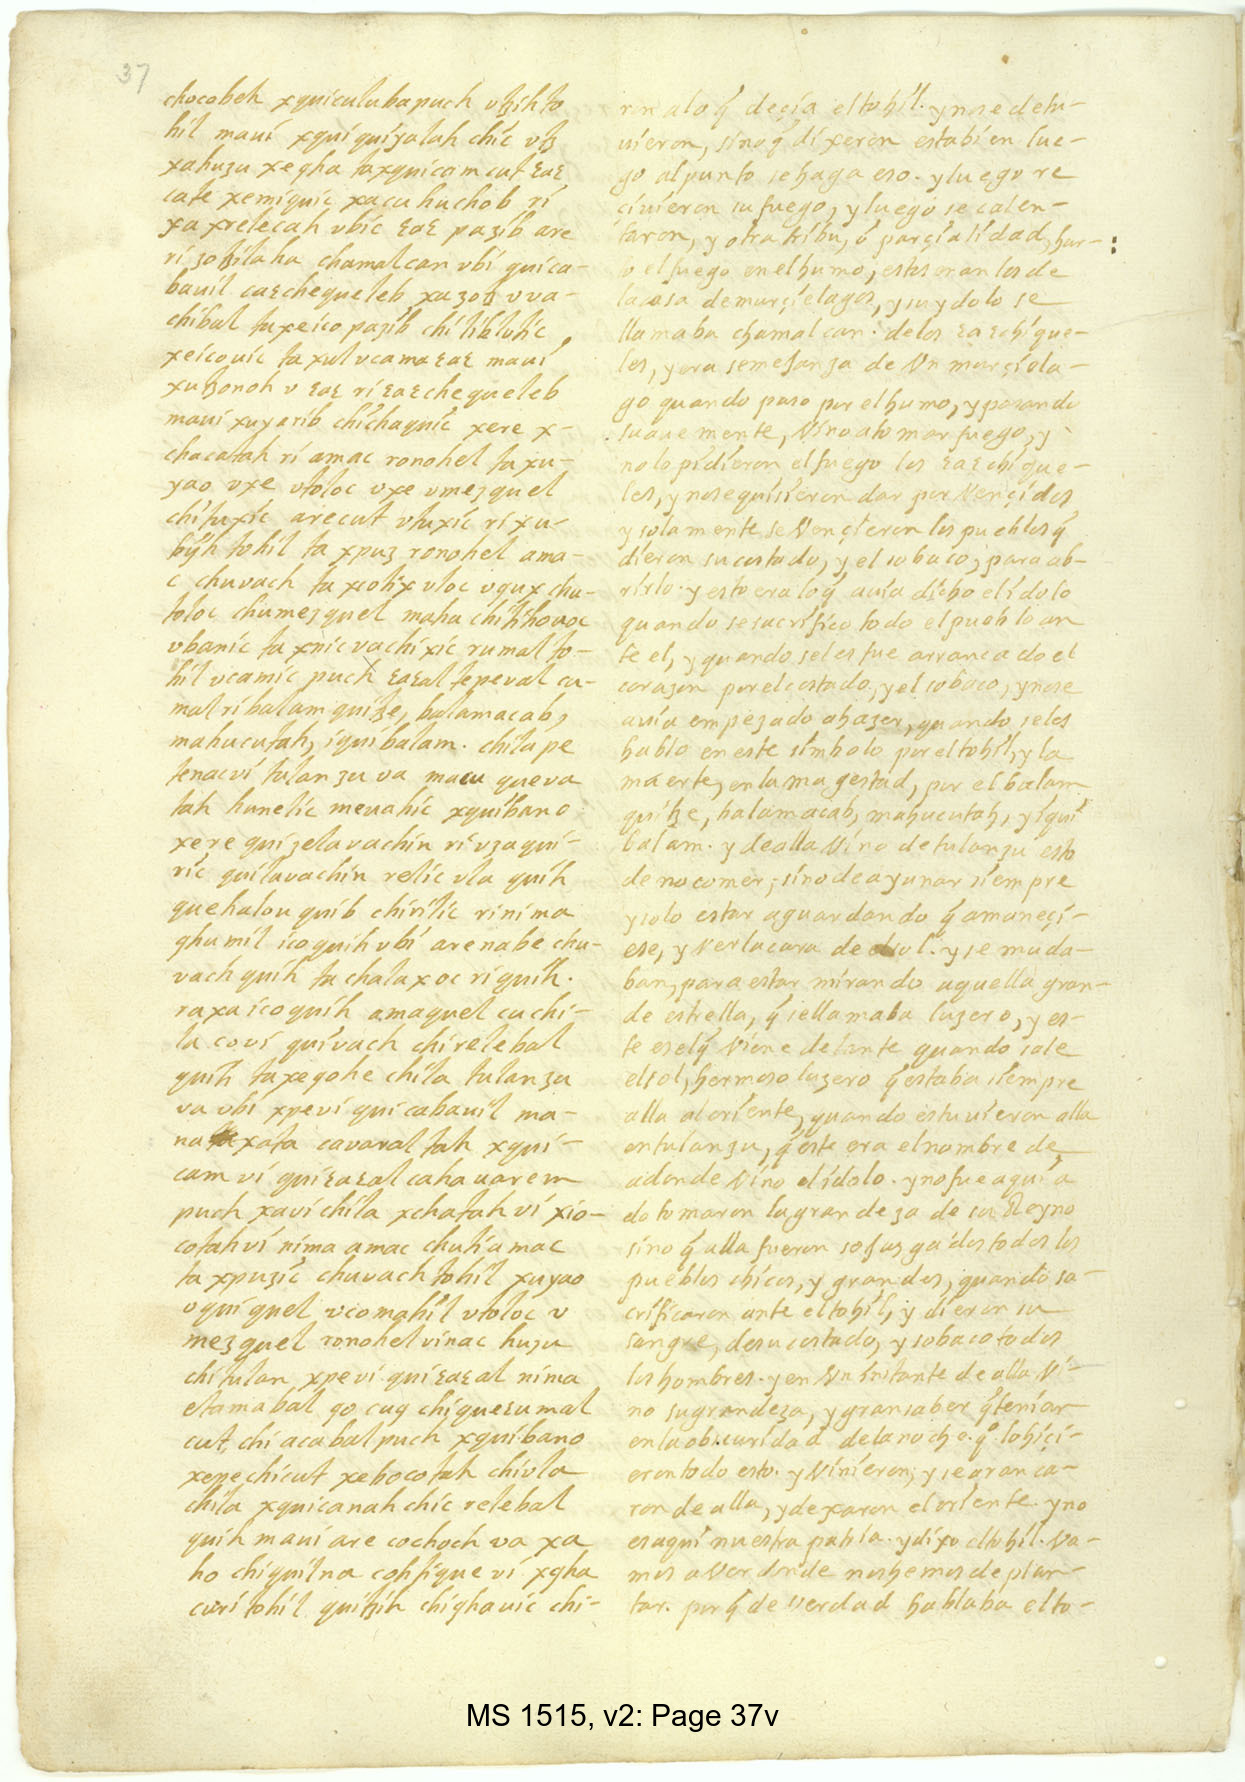 37
chocobeh xquiculuba puch vtzih to
hil maui xquiquiyalah chic vtz
xahuzu xegha taxquicam cut εaε
cate xemiquic xacu huchob ri
xa xrelecah vbic εaε pazib are
ri zotzila ha chamalcan vbi quica-
bauil caεchequeleb xa zotz vva-
chibal ta xeico pazib chi libluhic
xeicouic ta xul vcama εaε maui
xutzonoh v εaε ri εaεchequeleb
maui xuyarib chichaquic xere x-
chacatah ri amac ronohel ta xu-
yao vxe vtoloc vxe vmezquel
chituxic arecut vtuxic ri xu-
bijh tohil ta xpuz ronohel ama-
c chuvach ta xcotix vloc vqux chu-
toloc chumezquel maha chitihovoc
vbanic ta xnicvachixic rumal to-
hil vcamic puch εaεal tepeval cu-
mal ri balamquitze, balamacab,
mahucutah, iquibalam. chila pe
tenacvi tulan zu va macu queva
tah hunelic mevahic xquibano
xere quizelavachin ri vzaqui-
ric quilavachin relic vla quih
quehalou quib chirilic ri nima
ghumil icoquih vbi are nabe chu-
vach quih ta chalaxoc ri quih.
raxa icoquih amaquel cu chi-
la covi quivach chi relebal
quih ta xeqohe chila tulan zu
va vbi xpevi qui cabauil ma-
na xata cavaral tah xqui-
cam vi quiεaεal cahauarem
puch xavi chila xchatah vi xio-
cotahvi nima amac chuti amac
ta xpuzic chuvach tohil xuyao
vquiquel vcomahil vtoloc v
mezquel ronohel vinac huzu
chi tulan xpe vi quiεaεal nima
etamabal qo cuq chiqueεumal
cut, chi acabal puch xquibano
xepe chicut xebocotah chivla
chila xquicanah chic relebal
quih maui are cochoch va xa
ho chiquilna cohtique vi xgha
curi tohil quitzih chighauic chi-
rn alo q̃ deçia el tohil. y no se detu-
uieron, sino q̃ dixeron esta bien lue-
go al punto se haga eso. y luego re
ciuieron su fuego, y luego se calen-
taron, y otra tribu, ó parçialidad, hur-
to el fuego en el humo, estos eran los de
la casa de murçielagos, y su ydolo se
llamaba chamalcan. de los εaεchique-
les, y era semejanza de Vn murçiela-
go quando paso por el humo, y pasando
suauemente, Vino a tomar fuego, y
no lo pidieron el fuego los εaεchique-
les, y no se quisieron dar por Vençidos
y solamente se Vençieron los pueblos q̃
dieron su costado, y el sobaco, para ab-
rirlo. y esto era lo q̃ auia dicho el idolo
quando se sacrifico todo el pueblo an
te el, y quando se les fue arrancado el
corazon por el costado, y el sobaco, y no se
auia empezado a hazer, quando se les
hablo en este simbolo por el tohil, y la
muerte, en la magestad, por el balam
quitze, balamacab, mahucutah, y iqui
balam. y de alla Vino de tulanzu esto
de no comer; sino de ayunar siempre
y solo estar aguardando q̃ amaneçi-
ese, y Ver la cara de el sol. y se muda-
ban, para estar mirando aquella gran-
de estrella, q̃ se llamaba luzero, y es-
te es el q̃ Viene delante quando sale
el sol, hermoso luzero q̃ estaba siempre
alla al oriente, quando estuuieron alla
en tulanzu, q̃ este era el nombre de
adonde Vino el idolo. y no fue aqui a
do tomaron la grandeza de su Reyno
sino q̃ alla fueron sojuzgados todos los
pueblos chicos, y grandes, quando sa-
crificaron ante el tohil, y dieron su
sangre, de su costado, y sobaco todos
los hombres. y en Vn instante de alla Vi-
no su grandeza, y gran saber q̃ tenian
en la obscuridad de la noche. q̃ lo hiçi-
eron todo esto. y Vinieron, y se aranca-
ron de alla, y dexaron el oriente. y no
es aqui nuestra patria. y dixo el tohil. Va-
mos a Ver donde nos hemos de plan-
tar. por q̃ de Verdad hablaba el to-
MS 1515, v2: Page 37v